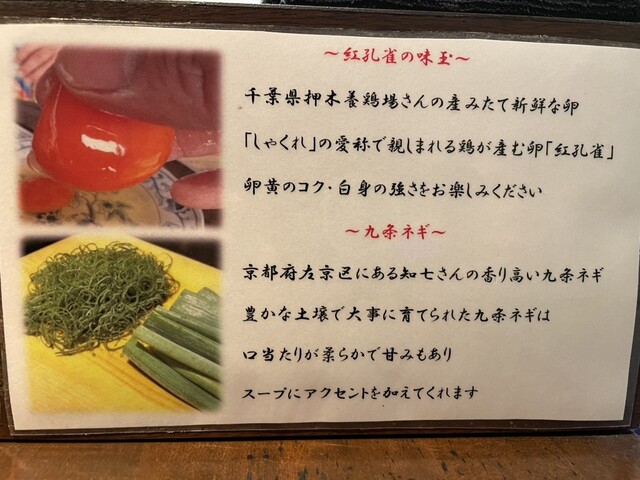 ～紅孔雀の味玉～
千葉県押木養鶏場さんの産みたて新鮮な卵
「しゃくれ」の愛称で親しまれる鶏が産む卵「紅孔雀」
卵黄のコク・白身の強さをお楽しみください
～九条ネギ～
京都府左京区にある知七さんの香り高い九条ネギ
豊かな土壌で大事に育てられた九条ネギは
口当たりが柔らかで甘みもあり
スープにアクセントを加えてくれます